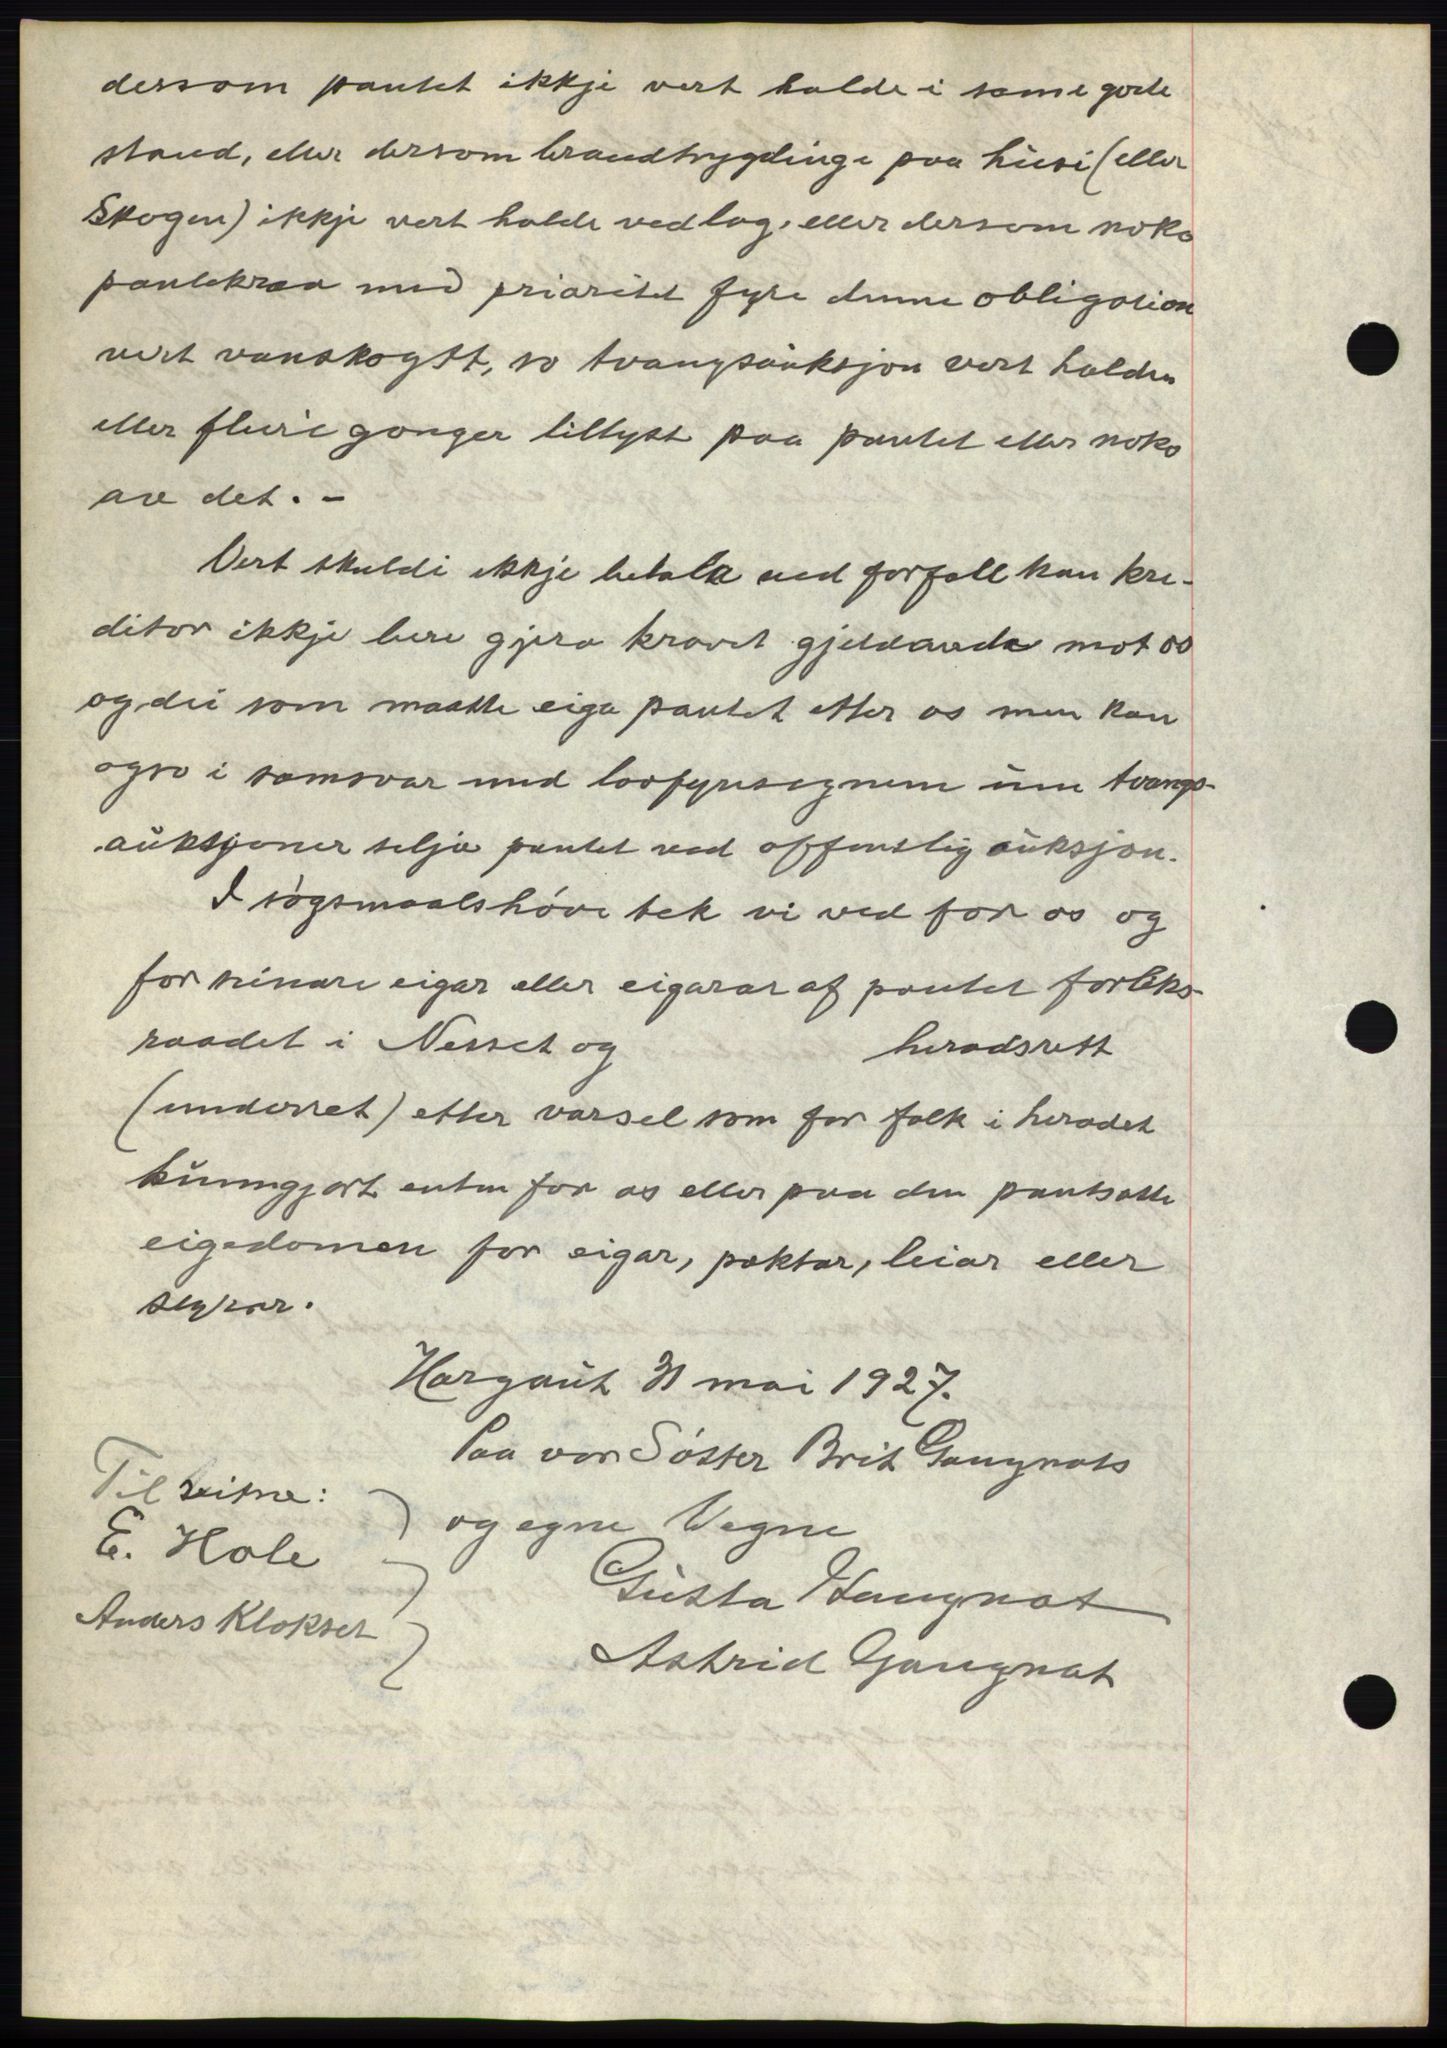 dersom pantet ikkje vert halde i same gode
stand, eller dersom brandtrygdinge paa husi (eller
Skogen) ikkje vert halde ved lag, eller dersom noko
pantekrav med prioritet fyre denne obligation
vert vanskøytt, so tvangsauksjon vert halden
eller fleire gonger tillyst paa pantet eller noko
av det. -
Vert skuldi ikkje betala ved forfall kan kre-
ditor ikkje bere gjera kravet gjeldande mot os
og dei som maatte eiga pantet etter os men kan
ogso i samsvar med lovfyresegnene um tvangs-
auksjoner selja pantet ved offentlig auksjon.
I søgsmaalshøve tek vi ved for os og
for sinare eigar eller eigarar af pantet forliks-
raadet i Nesset og heradsrett
(underret) etter varsel som for folk i heradet
kunngjort enten for os eller paa den pantsatte
eigedomen for eigar, paktar, leiar eller
styrar.
Hargaut 31 mai 1927.
Paa vor Søster Brit Gaugnats
og egne Vegne
Gusta Haugnat
Astrid Gaugnat
Til vitne:
E. Hole
Anders Klokset